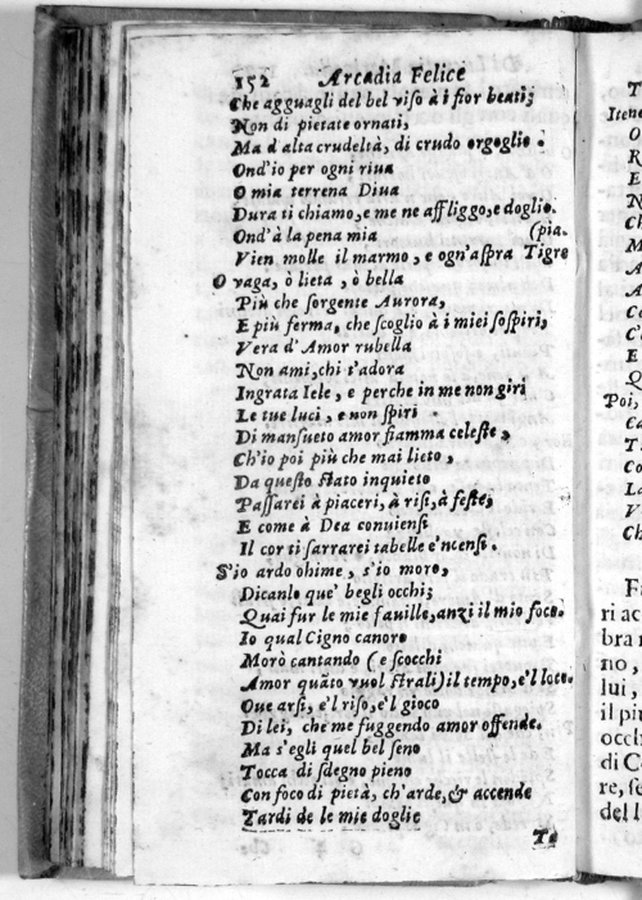 152 Arcadia Felice
Che agguagli del bel viſo à i fior beati;
Non di pietate ornati,
Ma d alta crudeltà, di crudo orgoglio.
Ond'io per ogni riua
O mia terrena Diua
Dura ti chiamo, e me ne affliggo, e doglio.
Ond'à la pena mia (pia.
Vien molle il marmo, e ogn'aſpra Tigre
O vaga, ò lieta, ò bella
Più che ſorgente Aurora,
E più ferma, che ſcoglio à i miei ſoſpiri,
Vera d'Amor rubella
Non ami, chi t'adora
Ingrata Iele, e perche in me non giri
Le tue luci, e non ſpiri
Di manſueto amor fiamma celeſte,
Ch'io poi più che mai lieto,
Da queſto ſtato inquieto
Paſſarei à piaceri, à riſi, à feſte;
E come à Dea conuienſi
Il cor ti ſarrarei tabelle e'ncenſi.
S'io ardo ohime, s'io moro,
Dicanlo que' begli occhi;
Quai fur le mie fauille, anzi il mio foco.
Io qual Cigno canoro
Morò cantando (e ſcocchi
Amor quãto vuol ſtrali) il tempo, e'l loco.
Oue arſi, e'l riſo, e'l gioco
Di lei, che me fuggendo amor offende.
Ma s'egli quel bel ſeno
Tocca di ſdegno pieno
Con foco di pietà, ch'arde, & accende
Tardi de le mie doglie
Te
T
Itene
O
R
E
N
Ch
M
A
A
Co
C'
E
Q
Poi,
Ca
T
Co
La
V
Ch
F
ri ac
bra
no,
lui,
il pi
occh
di C
re, ſe
del l